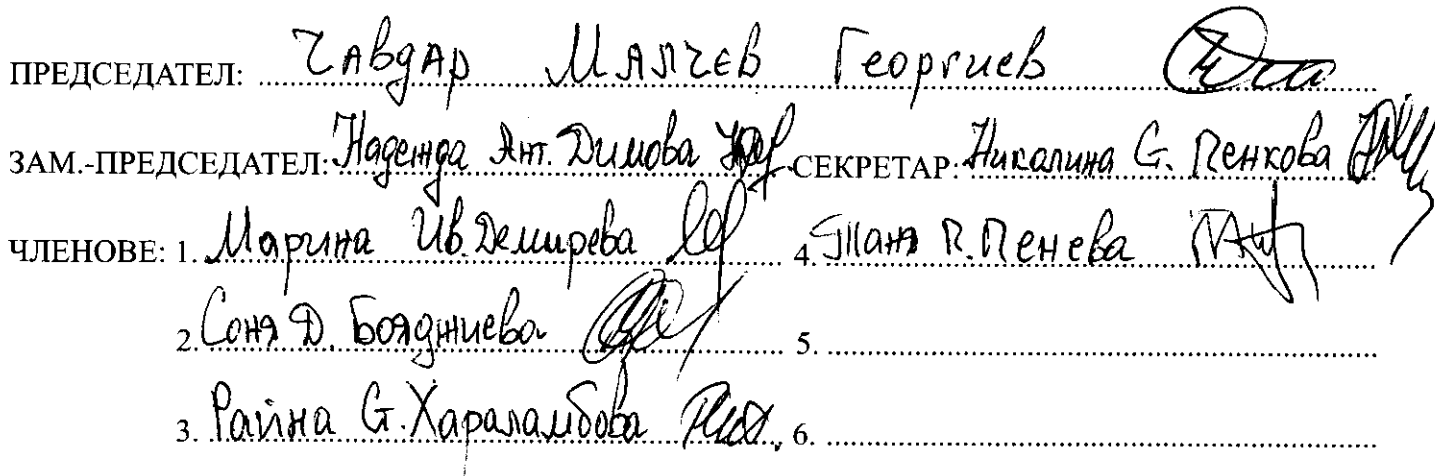 ПРЕДСЕДАТЕЛ: Чавдар Малчев Георгиев
ЗАМ.-ПРЕДСЕДАТЕЛ: Надежда Ант. Димова СЕКРЕТАР: Николина Ст. Пенкова
ЧЛЕНОВЕ: 1. Марина Ив. Демирева 4. Таня П. Пенева
2. Соня Д. Бояджиева 5.
3. Райна Ст. Хараламбова 6.